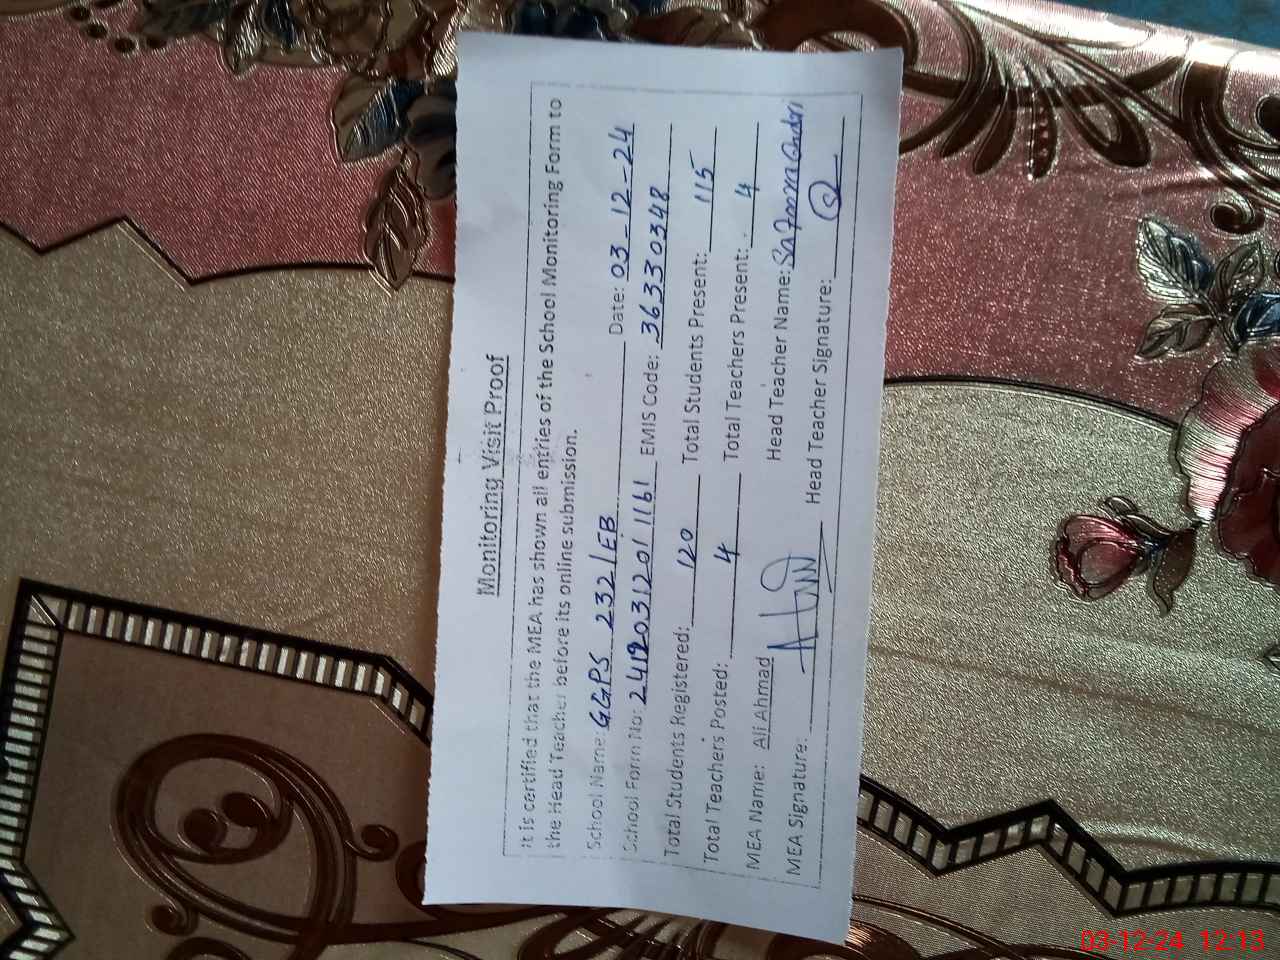 Monitoring Visit Proof
It is certified that the MEA has shown all entries of the School Monitoring Form to
the Head Teacher before its online submission.
School Name: GGPS 232/EB Date: 03-12-24
School Form No: 241203120 1161 EMIS Code: 36330348
Total Students Registered: 120 Total Students Present: 115
Total Teachers Posted: 4 Total Teachers Present: 4
MEA Name: Ali Ahmad Head Teacher Name:
MEA Signature: Head Teacher Signature:
03-12-24 12:13